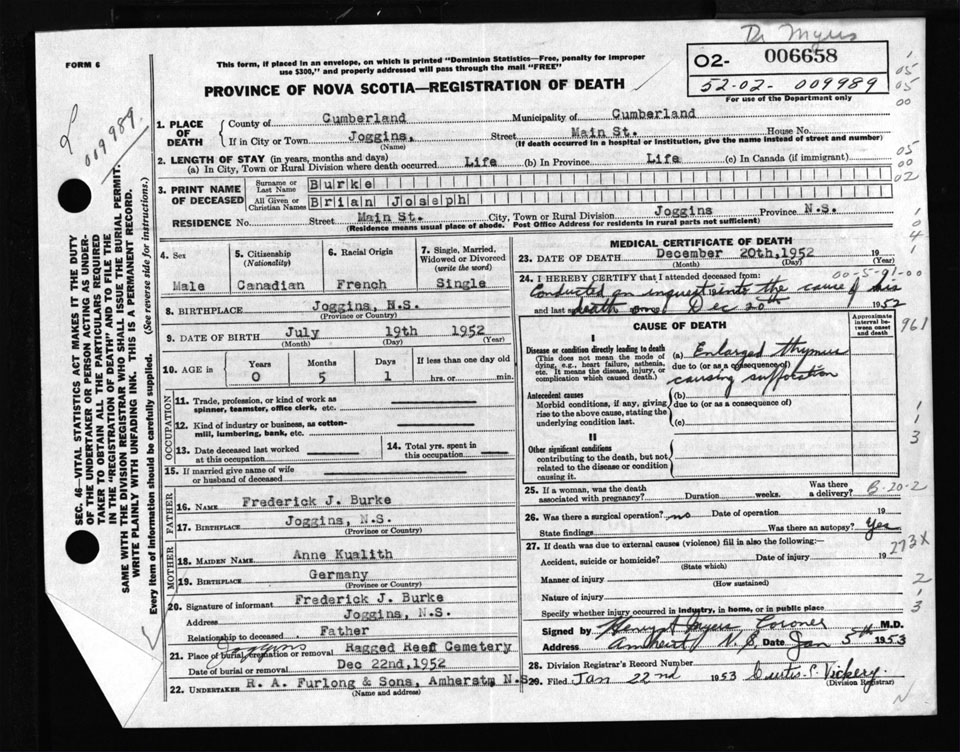 Dr Myers
FORM 6
This form, if placed in an envelope, on which is printed "Dominion Statistics—Free, penalty for improper
use $300," and properly addressed will pass through the mail "FREE"
O2- 006658
52-02- 009989
For use of the Department only
PROVINCE OF NOVA SCOTIA—REGISTRATION OF DEATH
009989.
1. PLACE OF DEATH
County of Cumberland Municipality of Cumberland
If in City or Town Joggins, Street Main St. House No.
(Name) (If death occurred in a hospital or institution, give the name instead of street and number)
2. LENGTH OF STAY (in years, months and days)
(a) In City, Town or Rural Division where death occurred Life (b) In Province Life (c) In Canada (if immigrant)
3. PRINT NAME OF DECEASED
Surname or Last Name Burke
All Given or Christian Names Brian Joseph
RESIDENCE No. Street Main St. City, Town or Rural Division Joggins Province N.S.
(Residence means usual place of abode. Post Office Address for residents in rural parts not sufficient)
4. Sex
Male
5. Citizenship (Nationality)
Canadian
6. Racial Origin
French
7. Single, Married, Widowed or Divorced (write the word)
Single
8. BIRTHPLACE Joggins, N.S.
(Province or Country)
9. DATE OF BIRTH July 19th 1952
(Month) (Day) (Year)
10. AGE in Years Months Days If less than one day old
0 5 1 hrs. or min.
OCCUPATION
11. Trade, profession, or kind of work as
spinner, teamster, office clerk, etc.
12. Kind of industry or business, as cotton-
mill, lumbering, bank, etc.
13. Date deceased last worked
at this occupation
14. Total yrs. spent in
this occupation
15. If married give name of wife
or husband of deceased
FATHER
16. Name Frederick J. Burke
17. Birthplace Joggins, N.S.
(Province or Country)
MOTHER
18. Maiden Name Anne Kualith
19. Birthplace Germany
(Province or Country)
20. Signature of informant Frederick J. Burke
Address Joggins, N.S.
Relationship to deceased Father
21. Place of burial, cremation or removal Joggins Ragged Reef Cemetery
Date of burial or removal Dec 22nd,1952
22. Undertaker R. A. Furlong & Sons, Amherst, N.S.
(Name and address)
MEDICAL CERTIFICATE OF DEATH
23. DATE OF DEATH December 20th,1952 19
(Month) (Day) (Year)
24. I HEREBY CERTIFY that I attended deceased from: 00-5-91-00
Conducted an inquest into the cause of his
and last death Dec 20th 1952
CAUSE OF DEATH
Approximate interval between onset and death
961
I
Disease or condition directly leading to death
(This does not mean the mode of
dying, e.g., heart failure, asthenia,
etc. It means the disease, injury, or
complication which caused death.)
(a) Enlarged thymus
due to (or as a consequence of)
causing suffocation
Antecedent causes
Morbid conditions, if any, giving
rise to the above cause, stating the
underlying condition last.
(b)
due to (or as a consequence of)
(c)
II
Other significant conditions
contributing to the death, but not
related to the disease or condition
causing it.
25. If a woman, was the death
associated with pregnancy? Duration weeks. Was there a delivery? B-20-2
26. Was there a surgical operation? no Date of operation 19
State findings Was there an autopsy? Yes
27. If death was due to external causes (violence) fill in also the following:—
273X
Accident, suicide or homicide? Date of injury 19
(State which)
Manner of injury
(How sustained)
Nature of injury
Specify whether injury occurred in industry, in home, or in public place
Signed by Henry A Myers Coroner M.D.
Address Amherst N.S. Date Jan 5th 1953
28. Division Registrar's Record Number
29. Filed Jan 22nd 1953 Curtis S. Vickery
(Division Registrar)
SEC. 46—VITAL STATISTICS ACT MAKES IT THE DUTY
OF THE UNDERTAKER OR PERSON ACTING AS UNDER-
TAKER TO OBTAIN ALL THE PARTICULARS REQUIRED
IN THE "REGISTRATION OF DEATH" AND TO FILE THE
SAME WITH THE DIVISION REGISTRAR WHO SHALL ISSUE THE BURIAL PERMIT.
WRITE PLAINLY WITH UNFADING INK. THIS IS A PERMANENT RECORD.
Every item of information should be carefully supplied. (See reverse side for instructions.)